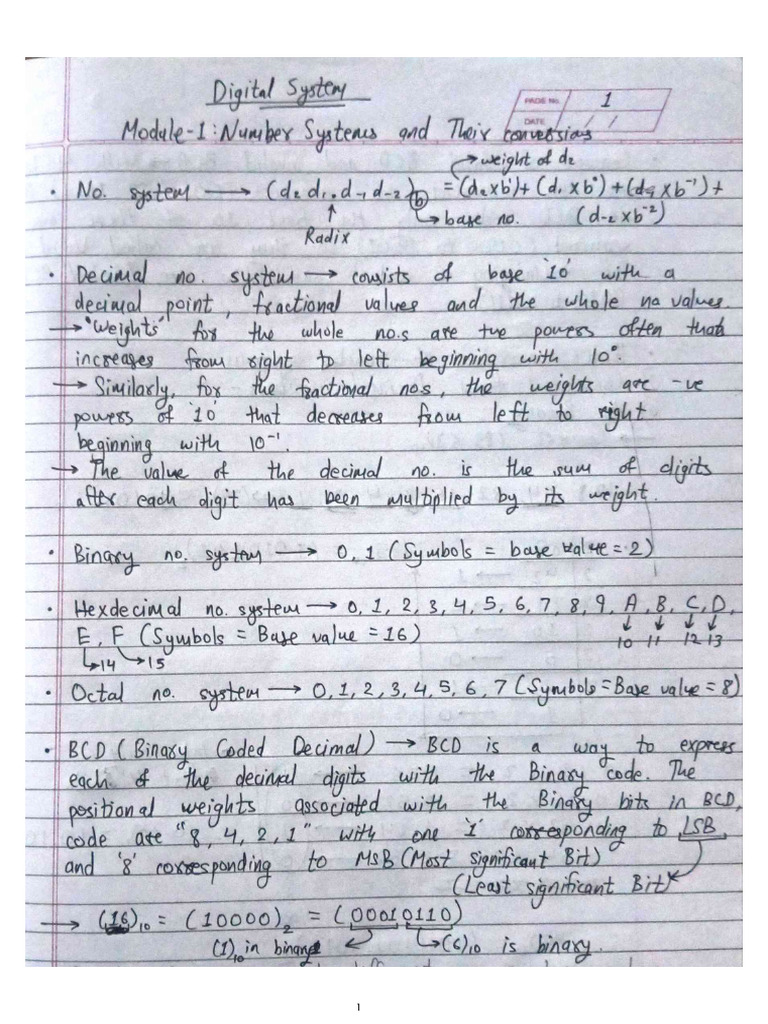 Digital System
PAGE No. 1
DATE / /
Module-1: Number Systems and Their conversions
→ weight of d₂
• No. system → (d₂ d₁ . d₋₁ d₋₂)b = (d₂ x b¹) + (d₁ x b⁰) + (d₋₁ x b⁻¹) +
→ base no. (d₋₂ x b⁻²)
Radix
• Decimal no. system → consists of base '10' with a
decimal point, fractional values and the whole no values.
→ "Weights" for the whole no.s are +ve powers of ten that
increases from right to left beginning with 10⁰.
→ Similarly, for the fractional nos, the weights are -ve
powers of '10' that decreases from left to right
beginning with 10⁻¹.
→ The value of the decimal no. is the sum of digits
after each digit has been multiplied by its weight.
• Binary no. system → 0, 1 (Symbols = base value = 2)
• Hexdecimal no. system → 0, 1, 2, 3, 4, 5, 6, 7, 8, 9, A, B, C, D,
10 11 12 13
E, F (Symbols = Base value = 16)
→14 →15
• Octal no. system → 0, 1, 2, 3, 4, 5, 6, 7 (Symbols = Base value = 8)
• BCD (Binary Coded Decimal) → BCD is a way to express
each of the decimal digits with the Binary code. The
positional weights associated with the Binary bits in BCD,
code are "8, 4, 2, 1" with one '1' corresponding to LSB,
and '8' corresponding to MSB (Most significant Bit)
(Least significant Bit)
→ (16)₁₀ = (10000)₂ = (00010110)
(1)₁₀ in binary → (6)₁₀ is binary.
1